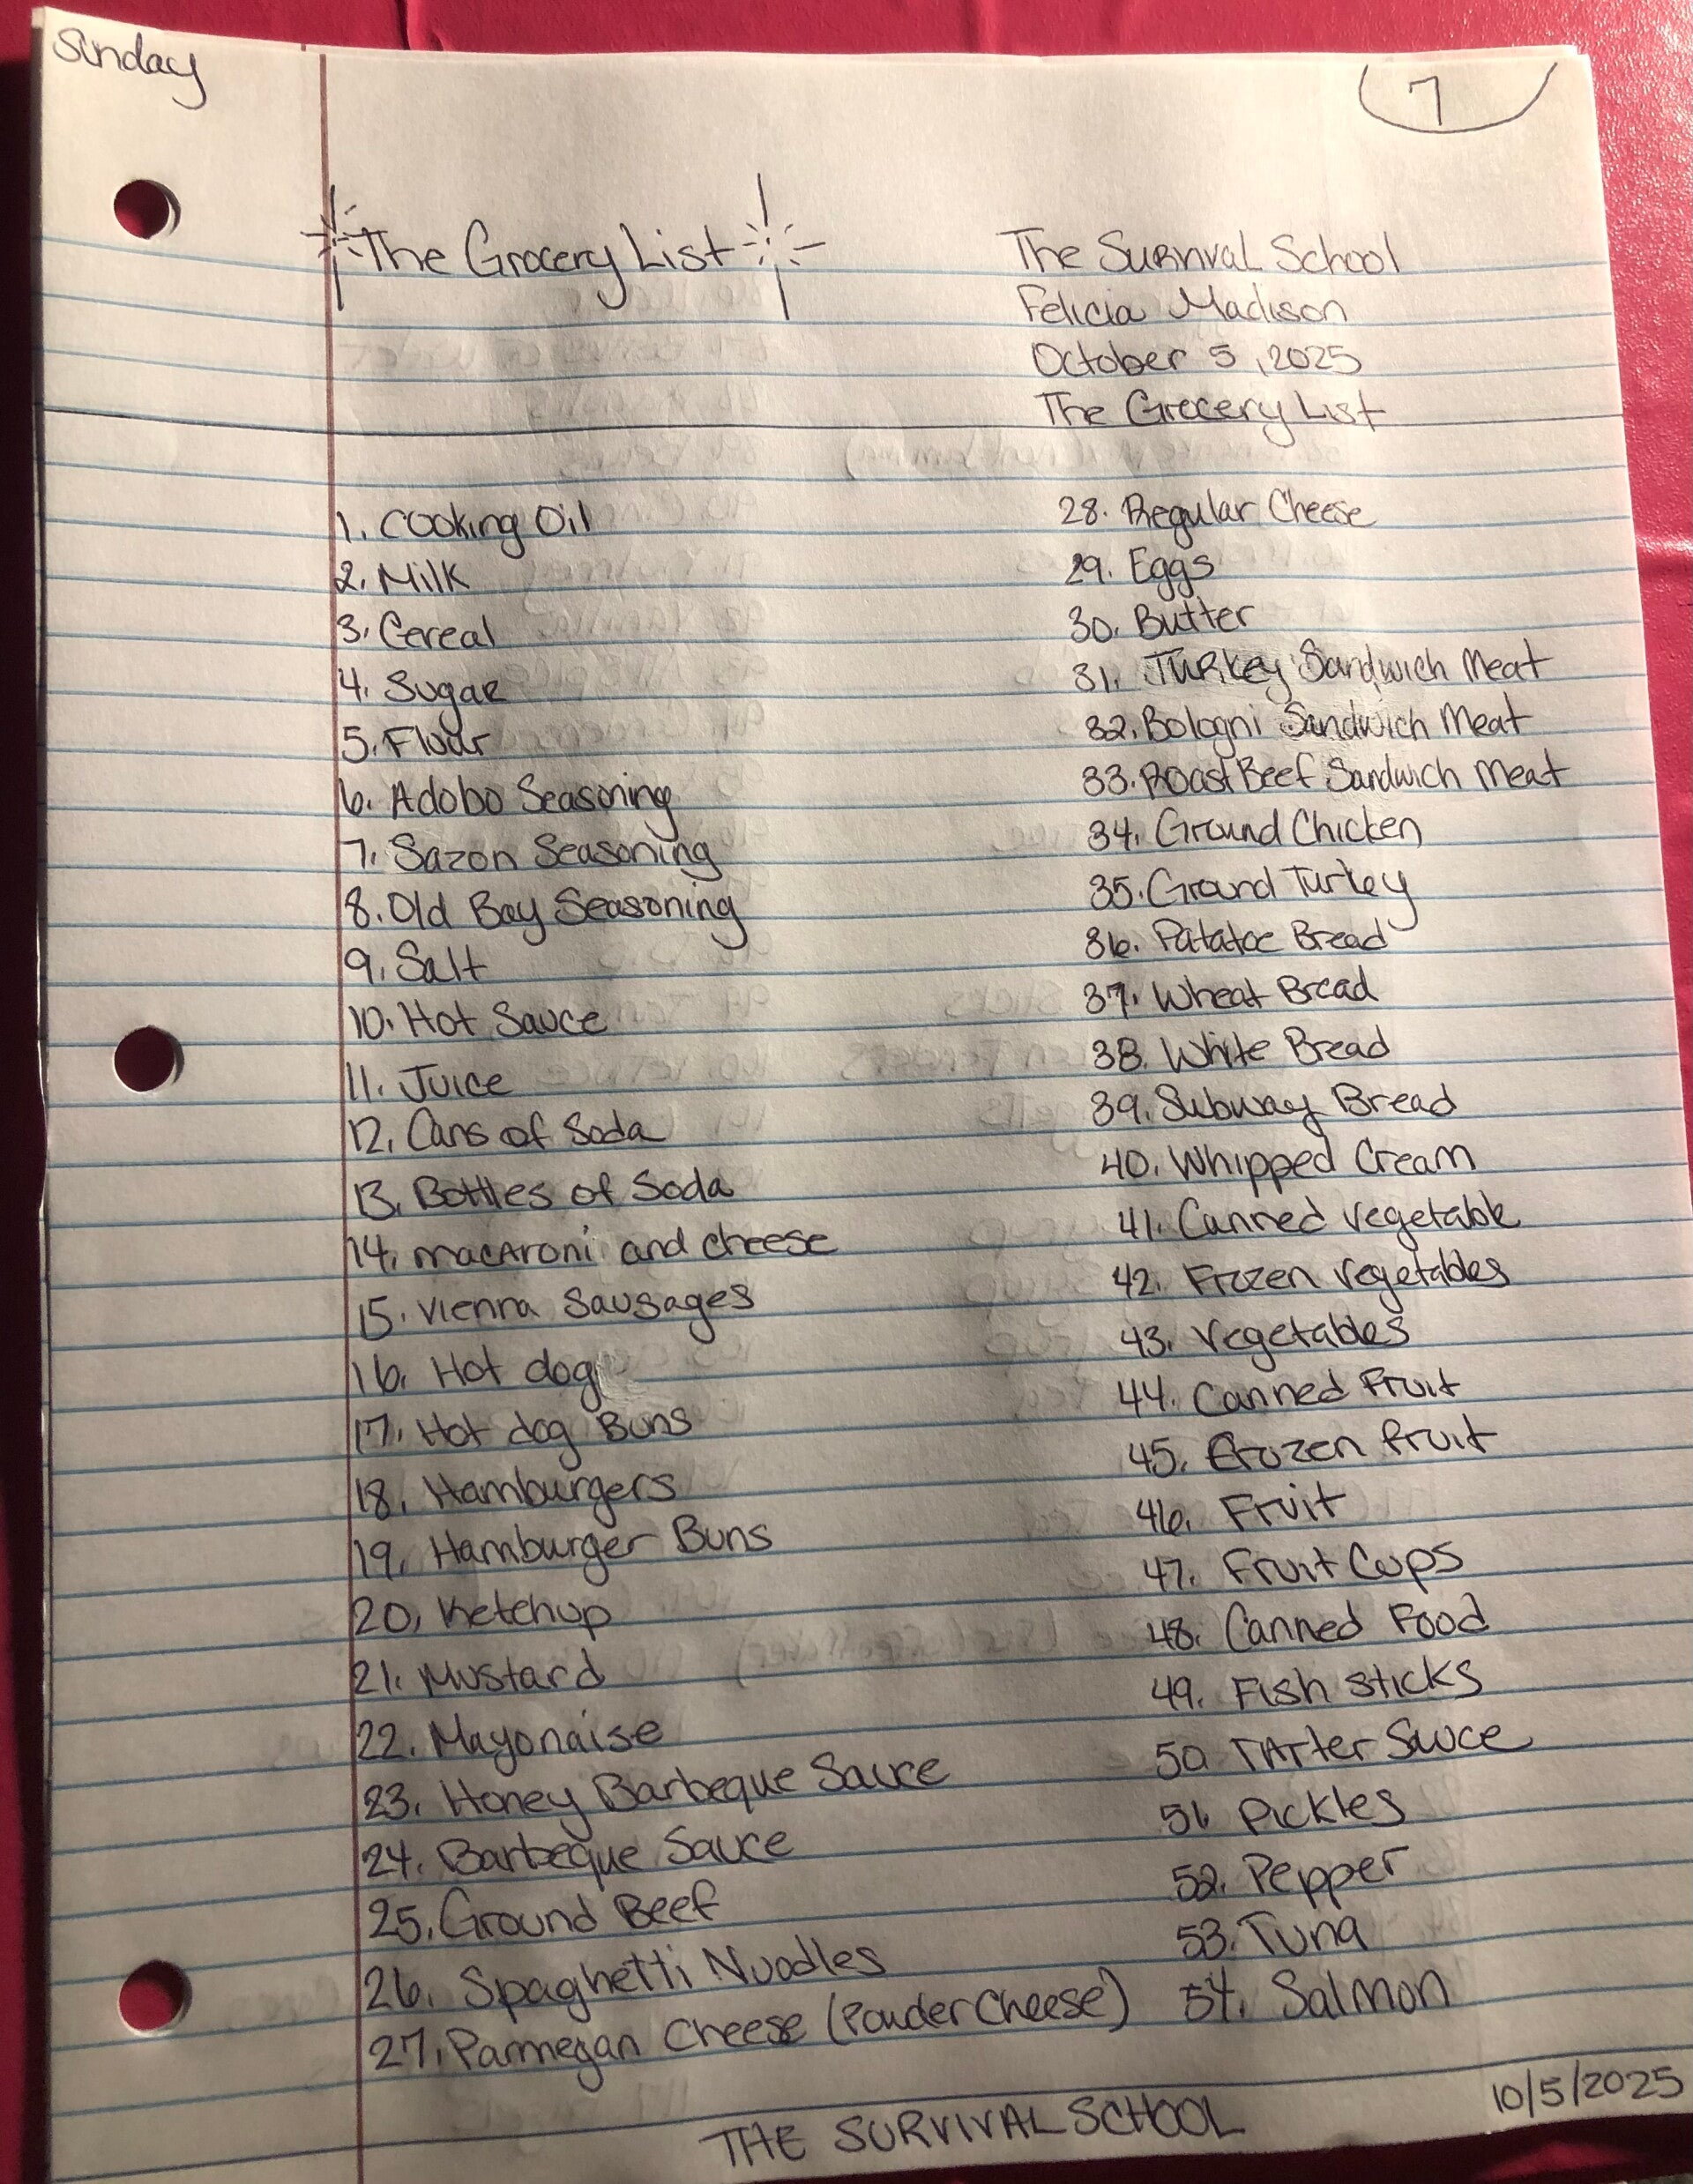 Sunday
7
The Grocery List
The Survival School
Felicia Madison
October 5, 2025
The Grocery List
1. Cooking Oil
2. Milk
3. Cereal
4. Sugar
5. Flour
6. Adobo Seasoning
7. Sazon Seasoning
8. Old Bay Seasoning
9. Salt
10. Hot Sauce
11. Juice
12. Cans of Soda
13. Bottles of Soda
14. macaroni and cheese
15. Vienna Sausages
16. Hot dog
17. Hot dog Buns
18. Hamburgers
19. Hamburger Buns
20. Ketchup
21. Mustard
22. Mayonaise
23. Honey Barbeque Sauce
24. Barbeque Sauce
25. Ground Beef
26. Spaghetti Noodles
27. Parmegan Cheese (Powder Cheese)
28. Regular Cheese
29. Eggs
30. Butter
31. Turkey Sandwich Meat
32. Bologni Sandwich Meat
33. Roast Beef Sandwich Meat
34. Ground Chicken
35. Ground Turkey
36. Patatoe Bread
37. Wheat Bread
38. White Bread
39. Subway Bread
40. Whipped Cream
41. Canned Vegetable
42. Frozen Vegetables
43. Vegetables
44. Canned Fruit
45. Frozen Fruit
46. Fruit
47. Fruit Cups
48. Canned Food
49. Fish sticks
50 Tarter Sauce
51. Pickles
52. Pepper
53. Tuna
54. Salmon
THE SURVIVAL SCHOOL
10/5/2025